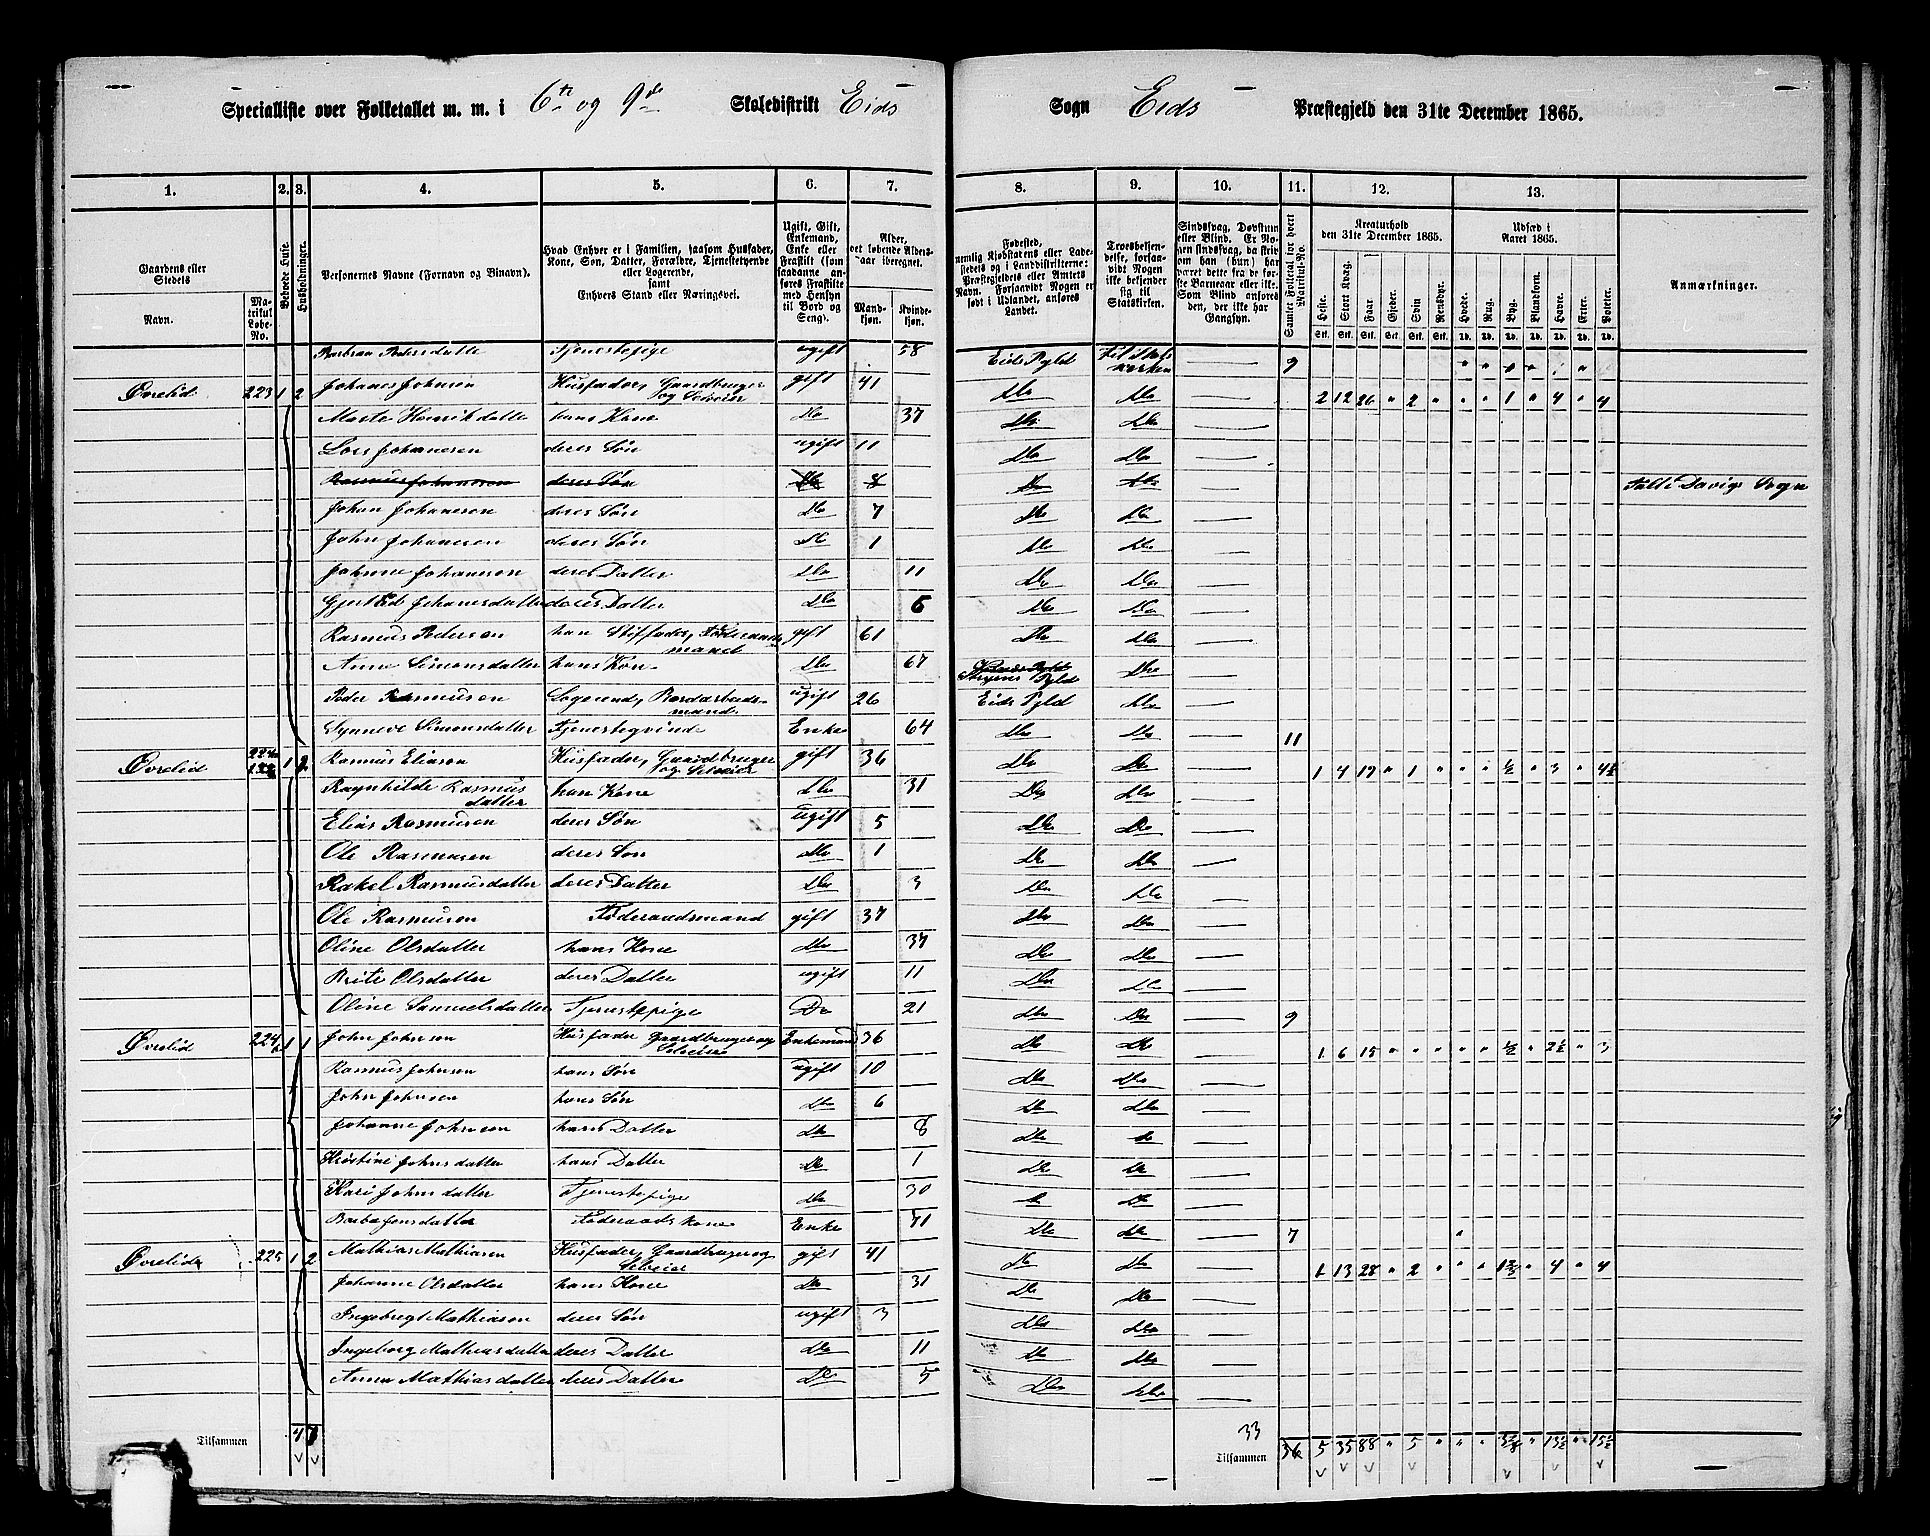 Specialliste over Folketallet m. m. i 6te og 9de Skoledistrikt Eids
Sogn Eids Præstegjeld den 31te December 1865.
1. 2. 3. 4. 5. 6. 7. 8. 9. 10. 11. 12. 13.
Gaardens eller Stedets
Navn. Matrikul Løbe-No.
Beboede Huse.
Husholdninger.
Personernes Navne (Fornavn og Binavn).
Hvad Enhver er i Familien, saasom Husfader, Kone, Søn, Datter, Forældre, Tjenestetyende eller Logerende, samt Enhvers Stand eller Næringsvei.
Ugift, Gift, Enkemand, Enke eller Fraskilt (som saadanne anføres Fraskilte med Hensyn til Bord og Seng).
Alder, det løbende Alders-aar iberegnet.
Mandkjøn. Kvindekjøn.
Fødested, nemlig Kjøbstadens eller Ladestedets og i Landdistrikterne: Præstegjeldets eller Amtets Navn. Forsaavidt Nogen er født i Udlandet, anføres Landet.
Troesbekjendelse, forsaavidt Nogen ikke bekjender sig til Statskirken.
Sindssvag, Døvstum eller Blind. Er Nogen sindssvag, da skriv om han (hun) har været dette fra de første Barneaar eller ikke. Som Blind anføres den, der ikke har Gangsyn.
Samlet Folketal for hvert Matrikul-No.
Kreaturhold den 31te December 1865.
Heste. Stort Kvæg. Faar. Gjeder. Svin. Rensdyr.
Udsæd i Aaret 1865.
Hvede. Rug. Byg. Blandkorn. Havre. Erter. Poteter.
Anmærkninger.
Barbraa Pedersdatter Tjenestepige ugift 58 Eids Pgld Til Statskirken 9
Øvrelid 223 1 2 Johanes Johnsen Husfader, Gaardbruger og Selveier gift 41 Do Do 2 12 26 " 2 " " " 1 " 4 " 4
Marte Henrikdatter hans Kone Do 37 Do Do
Lars Johanesen deres Søn ugift 11 Do Do
Rasmus Johanesen deres Søn Do 8 Do Do Talt i Davigs Sogn
Johan Johanesen deres Søn Do 7 Do Do
John Johanesen deres Søn Do 1 Do Do
Johanne Johanesen deres Datter Do 11 Do Do
Johanesdatter deres Datter Do 5 Do Do
Rasmus Pedersen han Stiffader, Føderaadsmand gift 61 Do Do
Anne Simonsdatter hans Kon. Do 67 Stryens Pgld Do
Peder Rasmusen Logerend, Bordarbeidsmand ugift 26 Eids Pgld Do
Synneve Simonsdatter Tjenesteqvinde Enke 64 Do Do 11
Øvrelid 224 1 2 Rasmus Eliasen Husfader, Gaardbruger og Selveier gift 36 Do Do 1 4 19 " 1 " " " ½ " 3 " 4½
Raynhilde Rasmusdatter han Kone Do 31 Do Do
Elias Rasmusen deres Søn ugift 5 Do Do
Ole Rasmusen deres Søn Do 1 Do Do
Rakel Rasmusdatter deres Datter Do 3 Do Do
Ole Rasmusen Føderaadsmand gift 37 Do Do
Oline Olsdatter hans Kone Do 37 Do Do
Brite Olsdatter deres Datter ugift 11 Do Do
Oline Samuelsdatter Tjenestepige Do 21 Do Do 9
Øvrelid 224 1 1 John Johnsen Husfader Gaardbruger og Selveier Enkemand 36 Do Do 1 6 15 " " " " " ½ " 2½ " 3
Rasmus Johnsen hans Søn ugift 10 Do Do
John Johnsen hans Søn Do 6 Do Do
Johanne Johnsen hans Datter Do 8 Do Do
Kristine Johnsdatter hans Datter Do 1 Do Do
Kari Johnsdatter Tjenestepige Do 30 Do Do
Barba Jonsdatter Føderaadskone Enke 71 Do Do 7
Øvrelid 225 1 2 Mathias Mathiasen Husfader, Gaardbruger og Selveier gift 41 Do Do 1 13 28 " 2 " " " " 4 " 4
Johanne Olsdatter hans Kone Do 31 Do Do
Ingebregt Mathiasen deres Søn ugift 3 Do Do
Ingeborg Mathiasdatter deres Datter Do 11 Do Do
Anna Mathiasdatter deres Datter Do 5 Do Do
33
Tilsammen 4 7 Tilsammen 36 5 35 88 " 5 " " " " 13½ " 15½